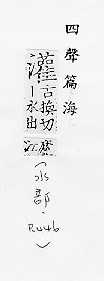 四聲篇海
古換切
｜水出
江
(水部.
P.046)